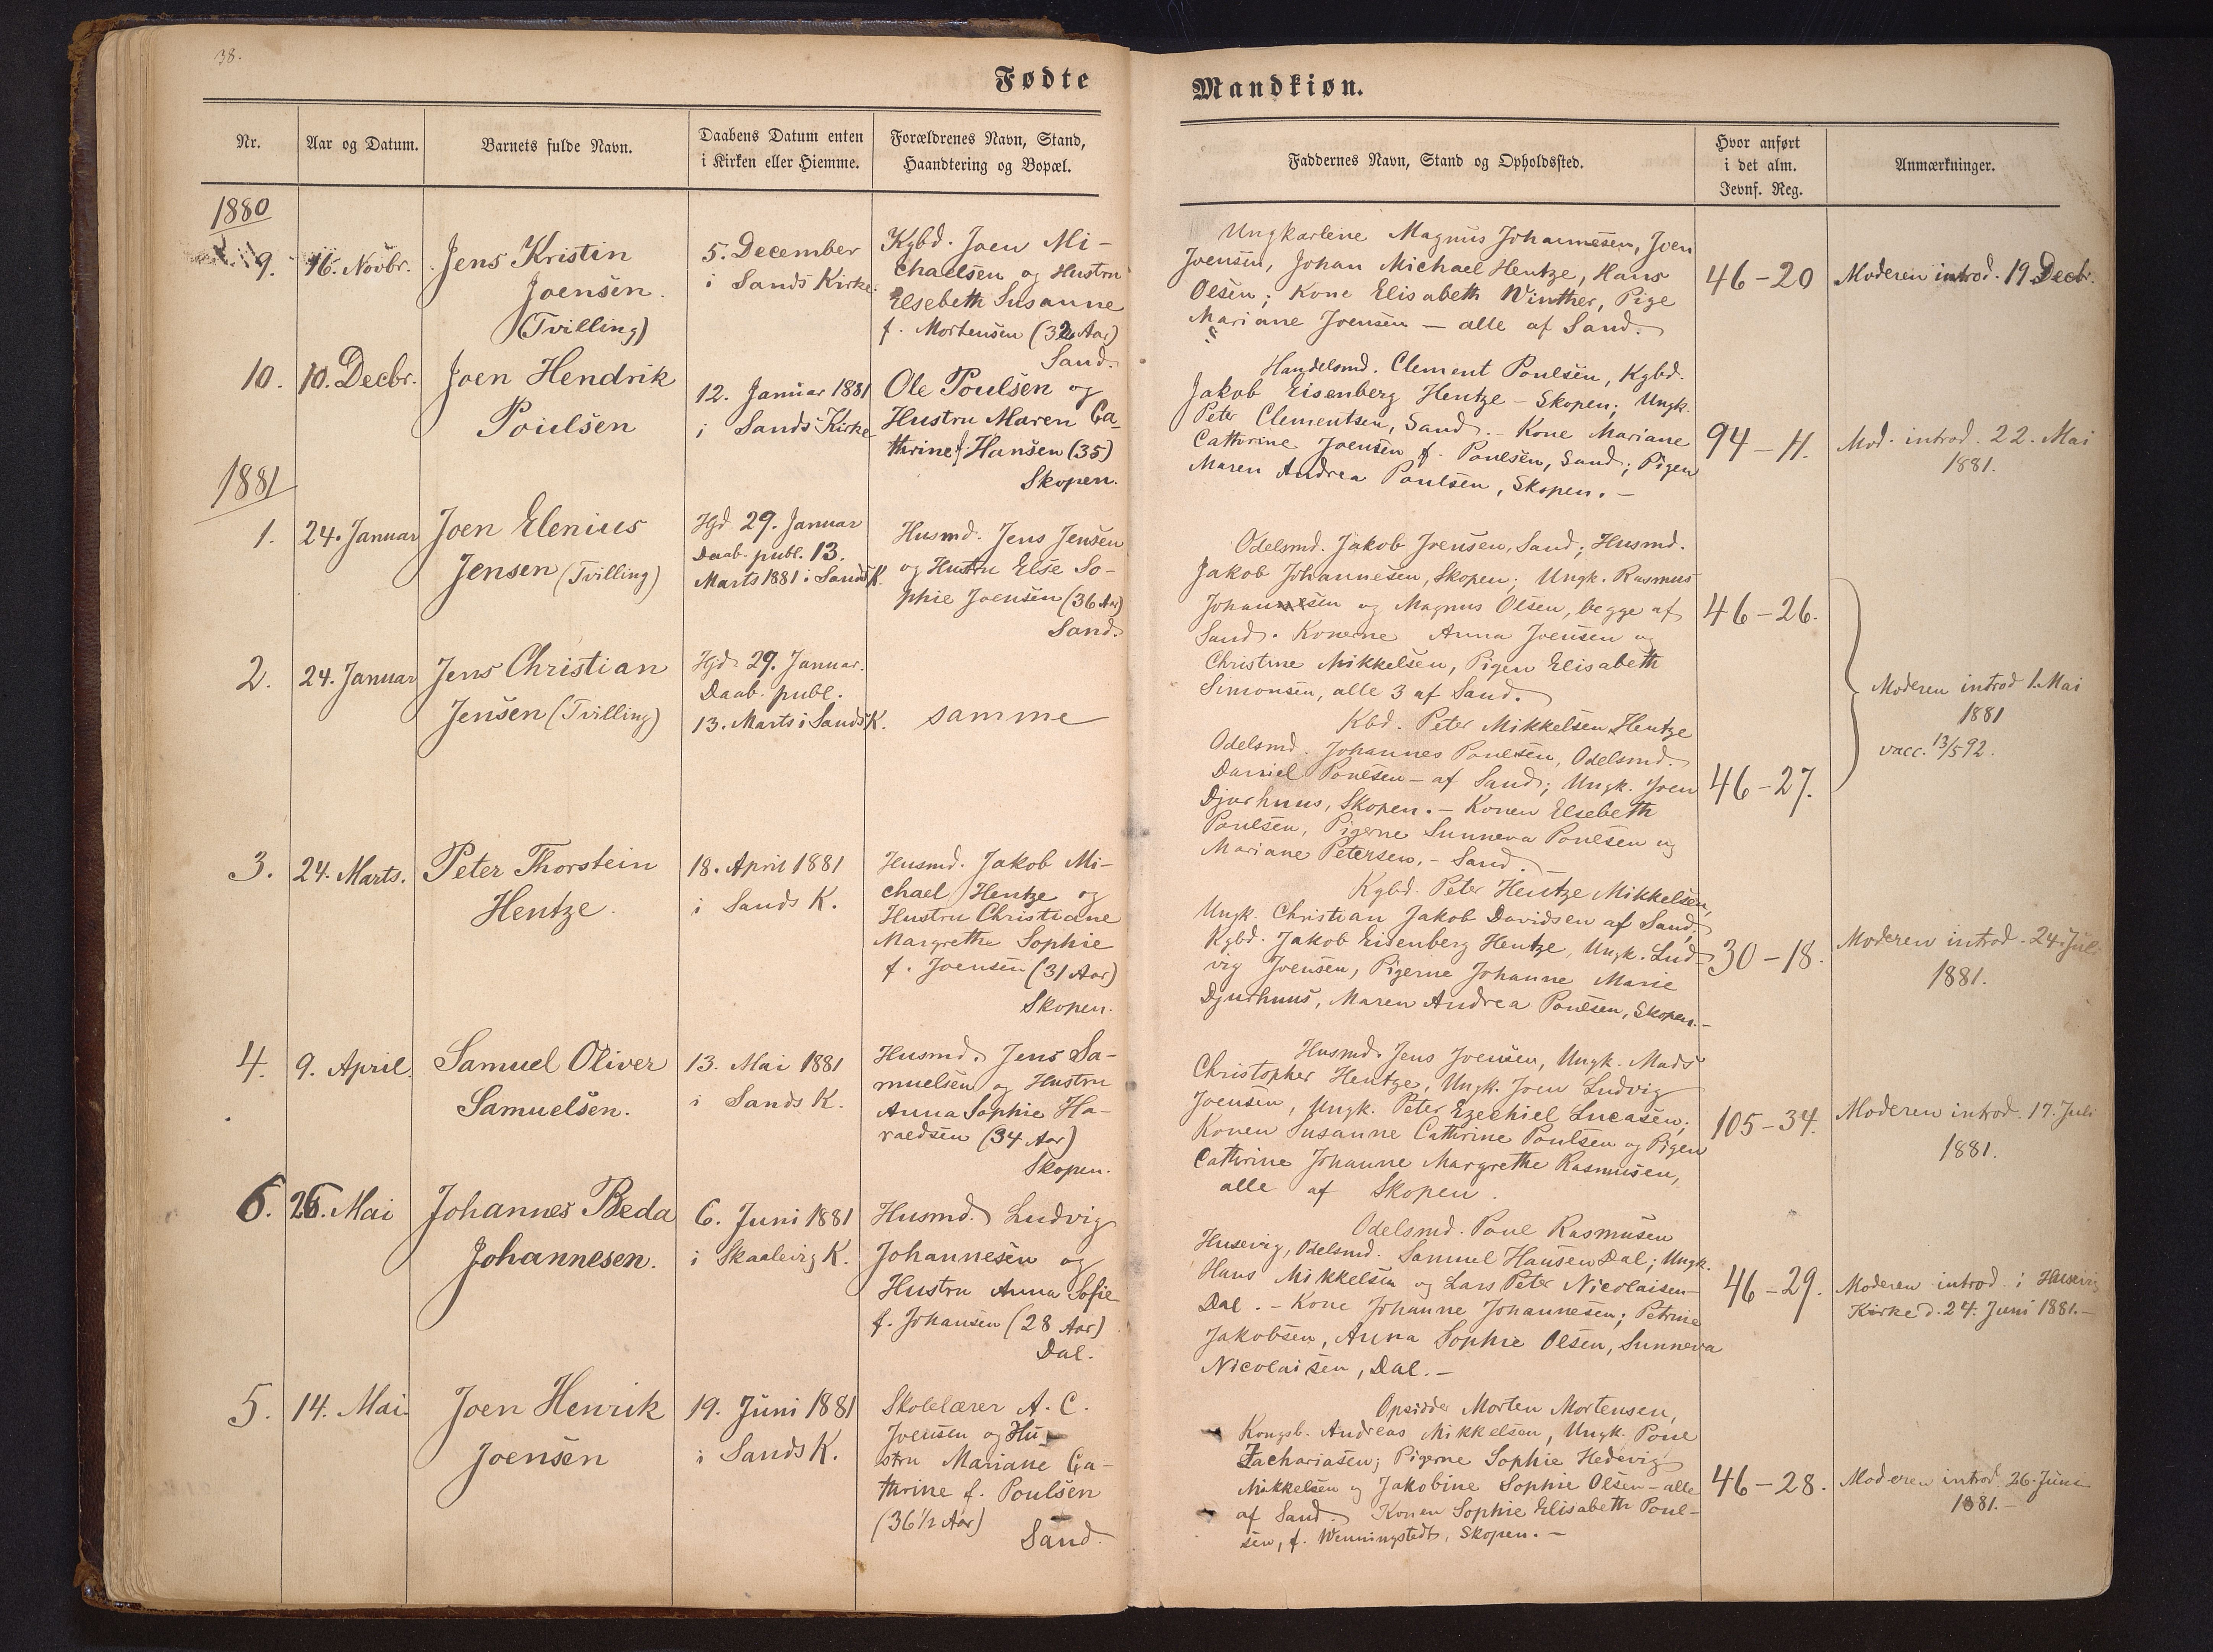 38.
Fødte
Mandkiøn.
Nr.
Aar og Datum.
Barnets fulde Navn.
Daabens Datum enten
i Kirken eller Hiemme.
Forældrenes Navn, Stand,
Haandtering og Bopæl.
Faddernes Navn, Stand og Opholdssted.
Hvor anført
i det alm.
Jevnf. Reg.
Anmærkninger.
1880
9.
16. Novbr.
Jens Kristin
Joensen.
(Tvilling)
5. December
i Sands Kirke.
Kgbd. Joen Mi-
chaelsen og Hustru
Elsebeth Susanne
f. Mortensen (32 Aar)
Sand.
Ungkarlene Magnus Johannesen, Joen
Joensen, Johan Michael Hentze, Hans
Olsen; Kone Elisabeth Winther, Pige
Mariane Joensen – alle af Sand.
46-20
Moderen introd. 19 Decbr.
10.
10. Decbr.
Joen Hendrik
Poulsen
12. Januar 1881
i Sands Kirke
Ole Poulsen og
Hustru Maren Ca-
thrine f. Hansen (35)
Skopen.
Handelsmd. Clement Poulsen, Kgbd.
Jakob Eisenberg Hentze – Skopen; Ungk.
Peter Clementsen, Sand. – Kone Mariane
Cathrine Joensen f. Poulsen, Sand; Pigen
Maren Andrea Poulsen, Skopen. –
94-11.
Mod. introd. 22. Mai
1881.
1881
1.
24. Januar
Joen Elenius
Jensen (Tvilling)
Hjd. 29. Januar
Daab. publ. 13.
Marts 1881 i Sands K.
Husmd. Jens Jensen
og Hustru Else So-
phie Joensen (36 Aar)
Sand.
Odelsmd. Jakob Joensen, Sand; Husmd.
Jakob Johannesen, Skopen; Ungk. Rasmus
Johannesen og Magnus Olsen, begge af
Sand. Konerne Anna Joensen og
Christine Mikkelsen, Pigen Elisabeth
Simonsen, alle 3 af Sand.
46-26.
2.
24. Januar
Jens Christian
Jensen (Tvilling)
Hjd. 29. Januar.
Daab. publ.
13. Marts i Sands K.
samme
Kbd. Peter Mikkelsen Hentze
Odelsmd. Johannes Poulsen, Odelsmd.
Daniel Poulsen – af Sand; Ungk. Joen
Djurhuus, Skopen. – Konen Elsebeth
Poulsen, Pigerne Sunneva Poulsen og
Mariane Petersen, – Sand.
46-27.
Moderen introd 1. Mai
1881
vacc. 13/5 92.
3.
24. Marts.
Peter Thorstein
Hentze.
18. April 1881
i Sands K.
Husmd. Jakob Mi-
chael Hentze og
Hustru Christiane
Margrethe Sophie
f. Joensen (31 Aar)
Skopen.
Kgbd. Peter Hentze Mikkelsen,
Ungk. Christian Jakob Davidsen af Sand;
Kgbd. Jakob Eisenberg Hentze, Ungk. Lud-
vig Joensen, Pigerne Johanne Marie
Djurhuus, Maren Andrea Poulsen, Skopen. –
30-18.
Moderen introd. 24. Juli
1881.
4.
9. April.
Samuel Oliver
Samuelsen.
13. Mai 1881
i Sands K.
Husmd. Jens Sa-
muelsen og Hustru
Anna Sophie Ha-
raldsen (34 Aar)
Skopen.
Husmd. Jens Joensen, Ungk. Mads
Christopher Hentze, Ungk. Joen Ludvig
Joensen, Ungk. Peter Ezechiel Lucasen;
Konen Susanne Cathrine Poulsen og Pigen
Cathrine Johanne Margrethe Rasmusen,
alle af Skopen.
105-34.
Moderen introd. 17. Juli
1881.
6.
26. Mai
Johannes Beda
Johannesen.
6. Juni 1881
i Skaalevig K.
Husmd. Ludvig
Johannesen og
Hustru Anna Sofie
f. Johansen (28 Aar)
Dal.
Odelsmd. Poul Rasmusen
Husevig, Odelsmd. Samuel Hansen Dal; Ungk.
Hans Mikkelsen og Lars Peter Nicolaisen
Dal. – Kone Johanne Johannesen; Petrine
Jakobsen, Anna Sophie Olsen, Sunneva
Nicolaisen, Dal. –
46-29.
Moderen introd. i Husevig
Kirke d. 24. Juni 1881. –
5.
14. Mai.
Joen Henrik
Joensen
19. Juni 1881
i Sands K.
Skolelærer A. C.
Joensen og Hu-
stru Mariane Ca-
thrine f. Poulsen
(36 1/2 Aar)
Sand.
Opsidder Morten Mortensen,
Kongsb. Andreas Mikkelsen, Ungk. Poul
Zachariasen; Pigerne Sophie Hedevig
Mikkelsen og Jakobine Sophie Olsen – alle
af Sand. Konen Sophie Elisabeth Poul-
sen, f. Wenningstedt, Skopen. –
46-28.
Moderen introd. 26. Juni
1881. –